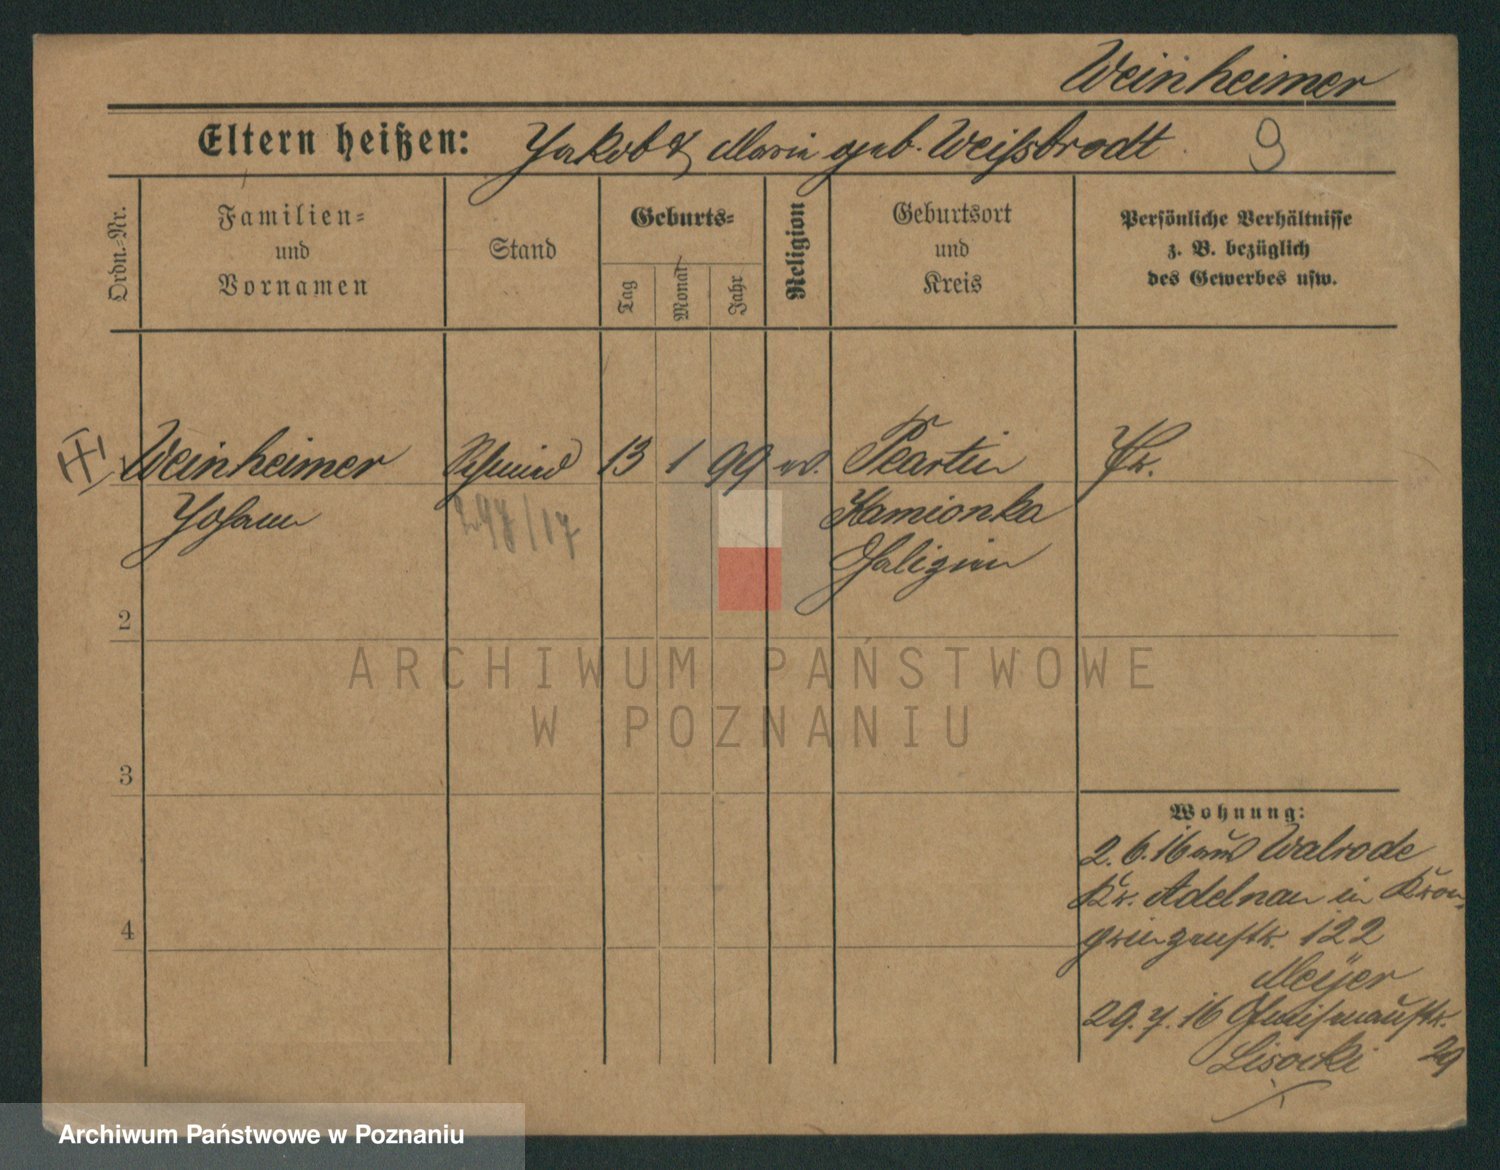 Weinheimer
Eltern heißen: Jakob & Maria geb. Weißbrodt 9
Ordn.-Nr.
Familien- und Vornamen
Stand
Geburts-
Tag
Monat
Jahr
Religion
Geburtsort und Kreis
Persönliche Verhältnisse z. B. bezüglich des Gewerbes usw.
1 Weinheimer Schmied 13 1 99 ev.
Johann 297/17
Kamionka
Galizien
2
ARCHIWUM PAŃSTWOWE
W POZNANIU
3
4
Wohnung:
2.6.16 aus Walrode
Kr. Adelnau in Kron-
prinzenstr. 122
Meÿer
29.7.16 Gneisenaustr.
Lisocki 29
Archiwum Państwowe w Poznaniu